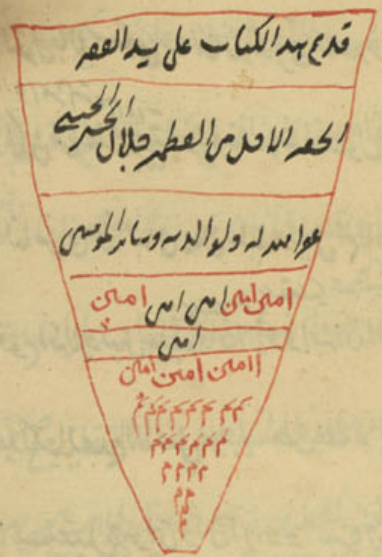 قد تم هدا الكتاب على يد الفقير
الحقير الاقل من القطمير جلال الحسيني
عفا الله له ولوالديه وسائر المومنين
امين امين امين امين امين
امين
اامين امين امين
م م م م م م م
م م م م م م
م م م م
م م
م